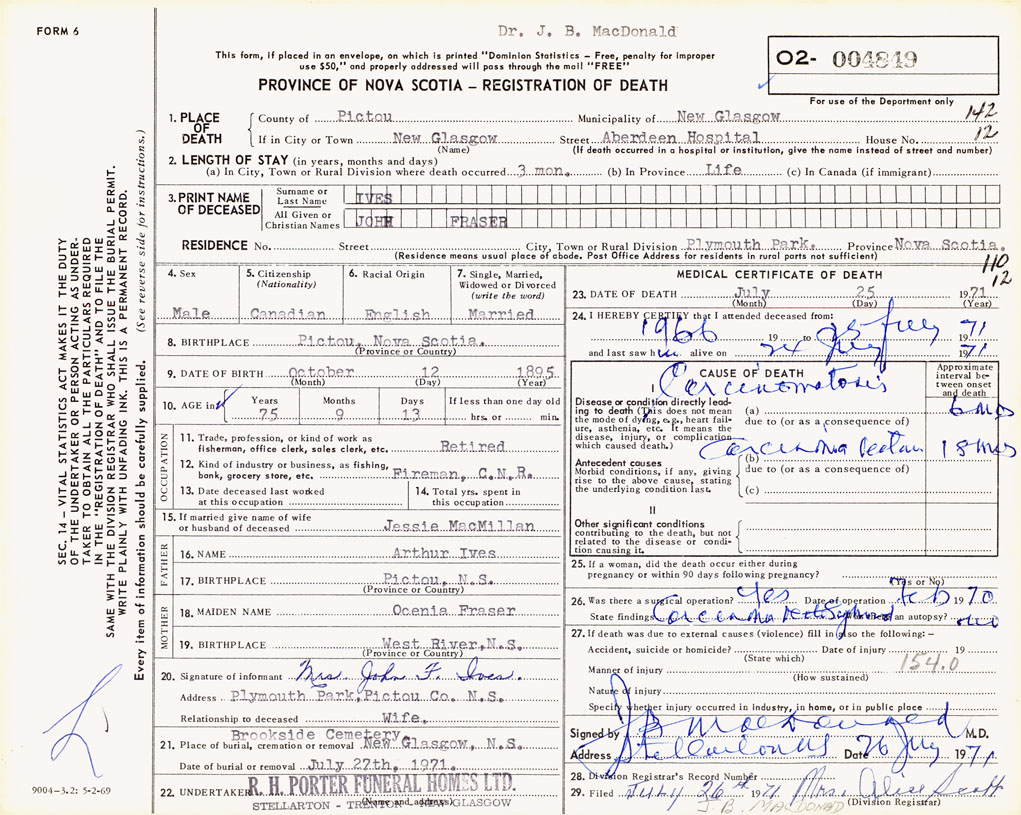 FORM 6
Dr. J. B. MacDonald
This form, if placed in an envelope, on which is printed "Dominion Statistics – Free, penalty for improper
use $50," and properly addressed will pass through the mail "FREE"
PROVINCE OF NOVA SCOTIA – REGISTRATION OF DEATH
O2- 004849
For use of the Department only
142
12
1. PLACE OF DEATH
County of Pictou Municipality of New Glasgow
If in City or Town New Glasgow Street Aberdeen Hospital House No.
(Name) (If death occurred in a hospital or institution, give the name instead of street and number)
2. LENGTH OF STAY (in years, months and days)
(a) In City, Town or Rural Division where death occurred 3 mon. (b) In Province Life (c) In Canada (if immigrant)
3. PRINT NAME OF DECEASED
Surname or Last Name IVES
All Given or Christian Names JOHN FRASER
RESIDENCE No. Street City, Town or Rural Division Plymouth Park. Province Nova Scotia.
(Residence means usual place of abode. Post Office Address for residents in rural parts not sufficient)
110
12
4. Sex
Male
5. Citizenship
(Nationality)
Canadian
6. Racial Origin
English
7. Single, Married,
Widowed or Divorced
(write the word)
Married
8. BIRTHPLACE Pictou, Nova Scotia.
(Province or Country)
9. DATE OF BIRTH October 12 1895
(Month) (Day) (Year)
10. AGE in Years Months Days If less than one day old
75 9 13 hrs. or min.
OCCUPATION
11. Trade, profession, or kind of work as
fisherman, office clerk, sales clerk, etc. Retired
12. Kind of industry or business, as fishing,
bank, grocery store, etc. Fireman, C.N.R.
13. Date deceased last worked
at this occupation
14. Total yrs. spent in
this occupation
15. If married give name of wife
or husband of deceased Jessie MacMillan
FATHER
16. NAME Arthur Ives
17. BIRTHPLACE Pictou, N.S.
(Province or Country)
MOTHER
18. MAIDEN NAME Ocenia Fraser
19. BIRTHPLACE West River, N.S.
(Province or Country)
20. Signature of informant Mrs. John F. Ives.
Address Plymouth Park, Pictou Co. N.S.
Relationship to deceased Wife.
Brookside Cemetery
21. Place of burial, cremation or removal New Glasgow, N.S.
Date of burial or removal July 27th, 1971.
22. UNDERTAKER R. H. PORTER FUNERAL HOMES LTD.
(Name and address)
STELLARTON – TRENTON – NEW GLASGOW
MEDICAL CERTIFICATE OF DEATH
23. DATE OF DEATH July 25 1971
(Month) (Day) (Year)
24. I HEREBY CERTIFY that I attended deceased from:
1966 19 to 25 July 1971
and last saw him alive on 24 July 1971
CAUSE OF DEATH
Approximate
interval be-
tween onset
and death
I
Carcinomatosis
Disease or condition directly lead-
ing to death (This does not mean
the mode of dying, e.g., heart fail-
ure, asthenia, etc. It means the
disease, injury, or complication
which caused death.)
(a) 6 mos
due to (or as a consequence of)
Carcinoma Rectum 18 mos
Antecedent causes
Morbid conditions, if any, giving
rise to the above cause, stating
the underlying condition last.
(b)
due to (or as a consequence of)
(c)
II
Other significant conditions
contributing to the death, but not
related to the disease or condi-
tion causing it.
25. If a woman, did the death occur either during
pregnancy or within 90 days following pregnancy?
(Yes or No)
26. Was there a surgical operation? Yes Date of operation Feb 1970
State findings Carcinoma Was there an autopsy? no
27. If death was due to external causes (violence) fill in also the following: –
Accident, suicide or homicide? Date of injury 19
(State which) 154.0
Manner of injury
(How sustained)
Nature of injury
Specify whether injury occurred in industry, in home, or in public place
Signed by J B MacDonald M.D.
Address Stellarton NS Date 26 July 1971
28. Division Registrar's Record Number
29. Filed July 26th 1971 Mrs. Alice Scott
(Division Registrar)
J. B. MACDONALD
SEC. 14 – VITAL STATISTICS ACT MAKES IT THE DUTY
OF THE UNDERTAKER OR PERSON ACTING AS UNDER-
TAKER TO OBTAIN ALL THE PARTICULARS REQUIRED
IN THE "REGISTRATION OF DEATH" AND TO FILE THE
SAME WITH THE DIVISION REGISTRAR WHO SHALL ISSUE THE BURIAL PERMIT.
WRITE PLAINLY WITH UNFADING INK. THIS IS A PERMANENT RECORD.
Every item of information should be carefully supplied. (See reverse side for instructions.)
9004–3.2: 5-2-69